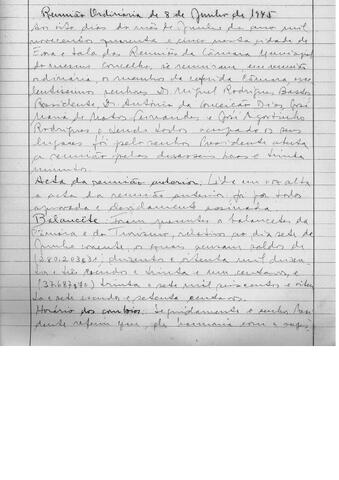 Reunião Ordinária de 8 de Junho de 1945
Aos oito dias do mês de Junho do ano mil
novecentos quarenta e cinco nesta cidade de
e sala das Reuniões da Câmara Municipal
do mesmo concelho, se reuniram em reunião
ordinária, os membros da referida Câmara, exce-
lentíssimos senhores D. Miguel Rodrigues Bastos
Presidente, D. António da Conceição Dias, José
Maria de Matos Fernandes e José Agostinho
Rodrigues e sendo todos ocupado os seus
lugares foi pelo senhor Presidente aberta
a reunião pelas dezasseis horas e trinta
minutos.
Acta da reunião anterior. Lida em voz alta
a acta da reunião anterior, já por todos
aprovada e devidamente assinada.
Balancête. Foram presentes os balancetes da
Câmara e do Turismo, relativos ao dia sete de
Junho corrente, os quais acusam saldos de
(280.203$31) duzentos e oitenta mil duzen-
tos e três escudos e trinta e um centavos, e
(37.687$70) trinta e sete mil seiscentos e oiten-
ta e sete escudos e setenta centavos.
Horário dos comboios. Seguidamente o senhor Presi-
dente referiu que, de harmonia com o